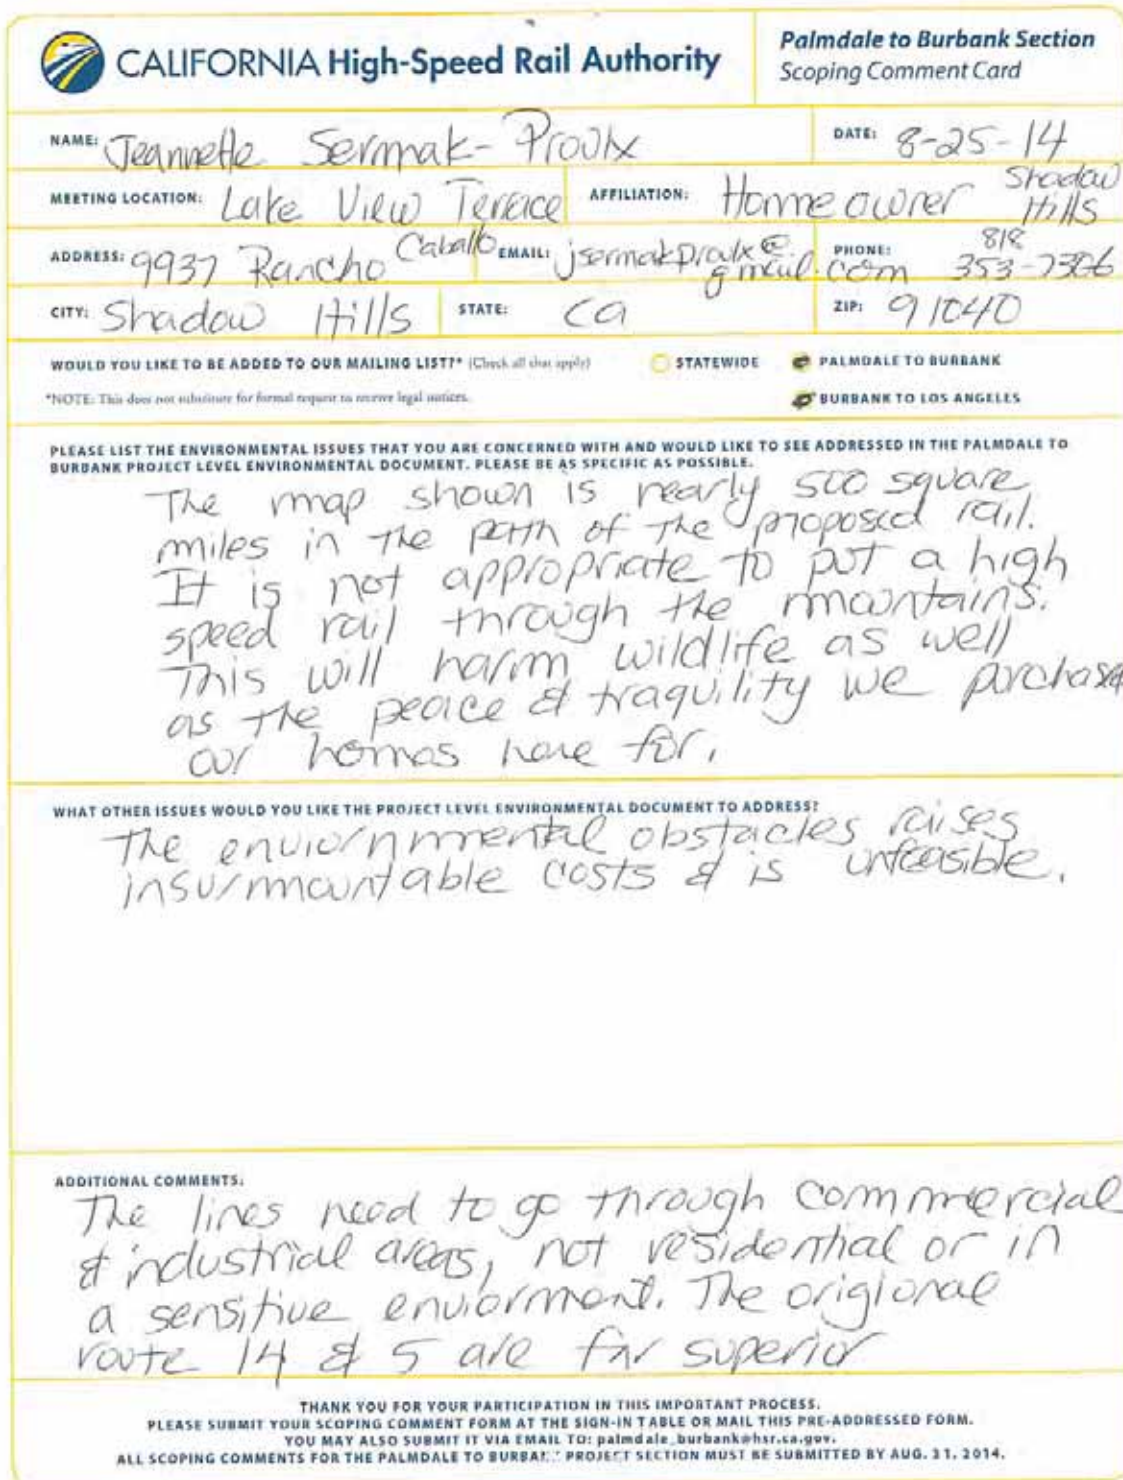 CALIFORNIA High-Speed Rail Authority
Palmdale to Burbank Section
Scoping Comment Card
NAME: Jeannette Sermak-Proulx
DATE: 8-25-14
MEETING LOCATION: Lake View Terrace
AFFILIATION: Homeowner Shadow Hills
ADDRESS: 9937 Rancho Caballo
EMAIL: jsermakproulx@gmail.com
PHONE: 818 353-7306
CITY: Shadow Hills
STATE: Ca
ZIP: 91040
WOULD YOU LIKE TO BE ADDED TO OUR MAILING LIST?* (Check all that apply)
STATEWIDE
PALMDALE TO BURBANK
*NOTE: This does not substitute for formal request to receive legal notices.
BURBANK TO LOS ANGELES
PLEASE LIST THE ENVIRONMENTAL ISSUES THAT YOU ARE CONCERNED WITH AND WOULD LIKE TO SEE ADDRESSED IN THE PALMDALE TO
BURBANK PROJECT LEVEL ENVIRONMENTAL DOCUMENT. PLEASE BE AS SPECIFIC AS POSSIBLE.
The map shown is nearly 500 square
miles in the path of the proposed rail.
It is not appropriate to put a high
speed rail through the mountains.
This will harm wildlife as well
as the peace & traquility we purchased
our homes here for.
WHAT OTHER ISSUES WOULD YOU LIKE THE PROJECT LEVEL ENVIRONMENTAL DOCUMENT TO ADDRESS?
The enviornmental obstacles raises
insurmountable costs & is unfeasible.
ADDITIONAL COMMENTS:
The lines need to go through commercial
& industrial areas, not residential or in
a sensitive enviorment. The origional
route 14 & 5 are far superior
THANK YOU FOR YOUR PARTICIPATION IN THIS IMPORTANT PROCESS.
PLEASE SUBMIT YOUR SCOPING COMMENT FORM AT THE SIGN-IN TABLE OR MAIL THIS PRE-ADDRESSED FORM.
YOU MAY ALSO SUBMIT IT VIA EMAIL TO: palmdale_burbank@hsr.ca.gov.
ALL SCOPING COMMENTS FOR THE PALMDALE TO BURBANK PROJECT SECTION MUST BE SUBMITTED BY AUG. 31, 2014.